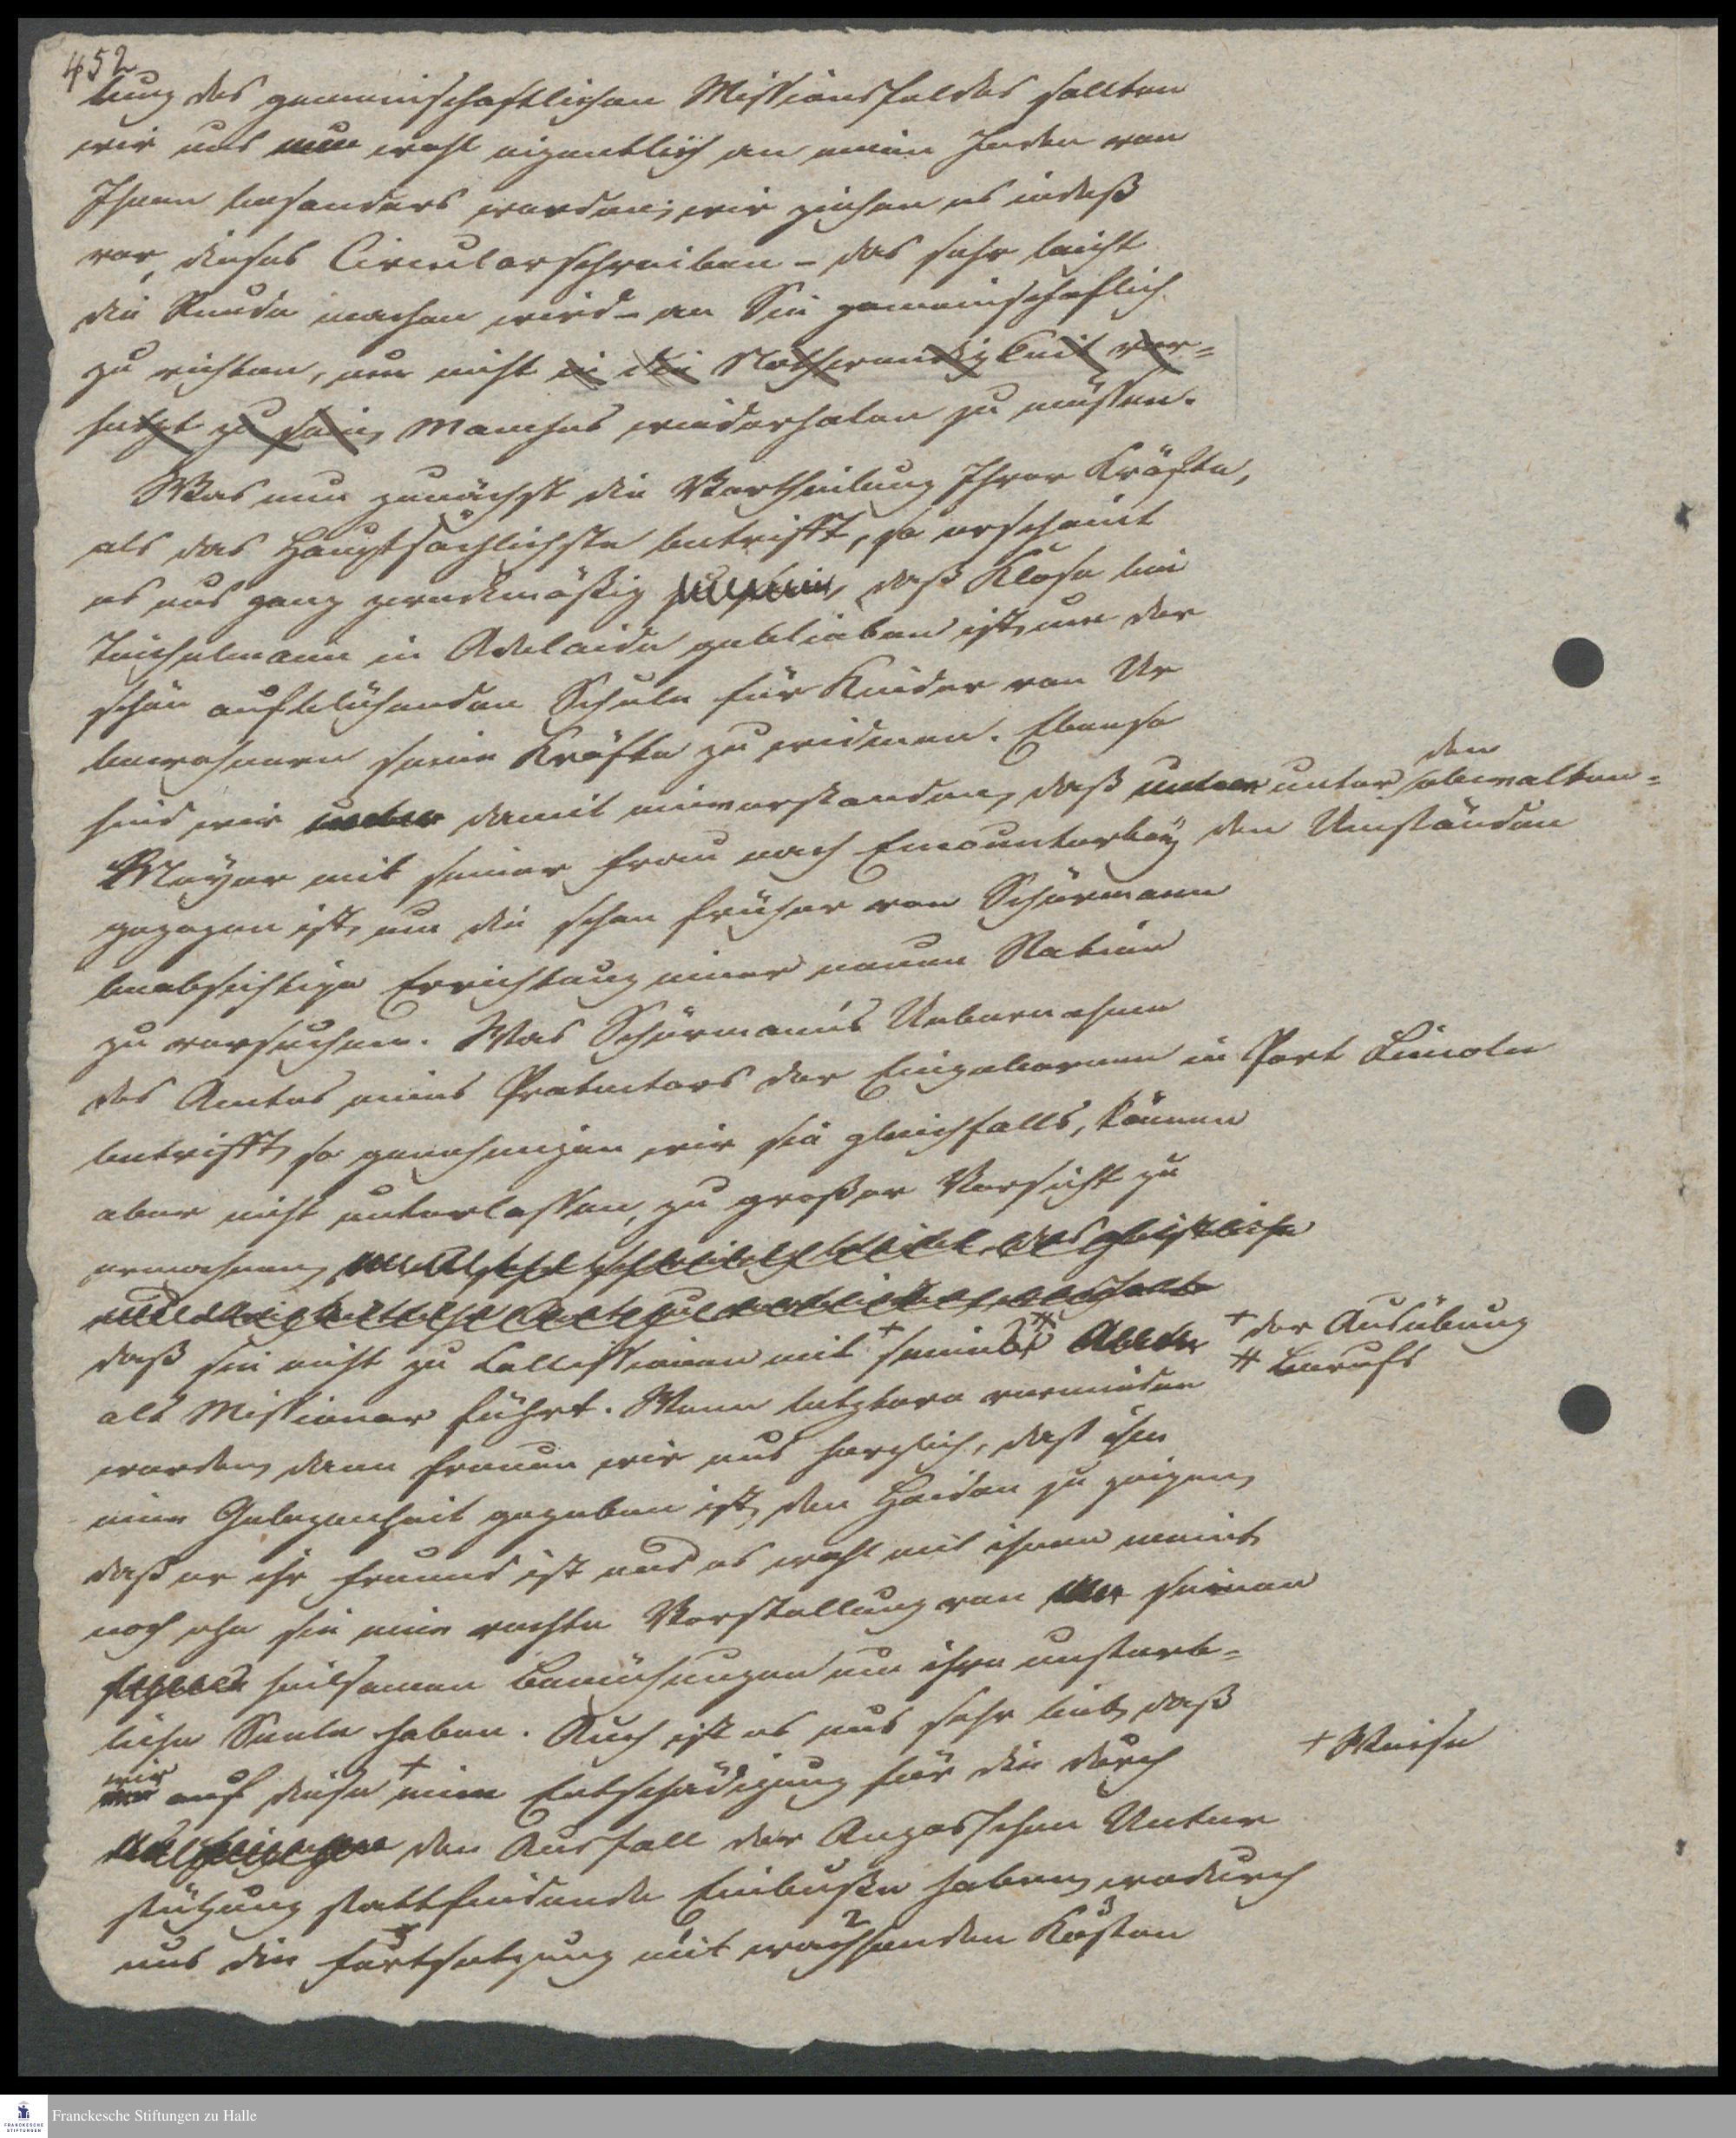 452
lung des gemeinschaftlichen Missionsfeldes sollten
wir uns nun wohl eigentlich an einen Jeden von
Ihnen besonders wenden; wir ziehen es indeß
vor, dieses Circularschreiben – das sehr leicht
die Runde machen wird – an Sie gemeinschaftlich
zu richten, um nicht in die Nothwendigkeit ver=
setzt zu sein, Manches wiederholen zu müssen.
Was nun zunächst die Vertheilung Ihrer Kräfte,
als das Hauptsächlichste betrifft, so erscheint
es uns ganz zweckmäßig zu sein, daß Klose bei
Teichelmann in Adelaide geblieben ist, um der
schön aufblühenden Schule für Kinder von Ur
bewohnern seine Kräfte zu widmen. Ebenso
sind wir damit einverstanden, daß unter obwalten=
den
Meyer mit seiner Frau nach Encounterbay den Umständen
gezogen ist, um die schon früher von Schürmann
beabsichtige Errichtung einer neuen Station
zu versuchen. Was Schürmann's Uebernahme
des Amtes eines Protectors der Eingebornen in Port Lincoln
betrifft, so genehmigen wir sie gleichfalls, können
aber nicht unterlassen, zu großer Vorsicht zu
ermahnen,
daß sie nicht zu Collissionen mit + seines # + der Ausübung
als Missionar führt. Wenn letztere vermieden # Berufs
werden, dann freuen wir uns herzlich, daß ihm
eine Gelegenheit gegeben ist, den Heiden zu zeigen,
daß er ihr Freund ist und es wohl mit ihnen meint,
noch ehe sie eine rechte Vorstellung von seinen
heilsamen Bemühungen um ihre unsterb=
liche Seele haben. Auch ist es uns sehr lieb, daß
wir auf diese + eine Entschädigung für die durch + Weise
den Ausfall der Angasschen Unter
stützung stattfindende Einbuße haben, wodurch
uns die Fortsetzung mit wachsenden Kosten
Franckesche Stiftungen zu Halle